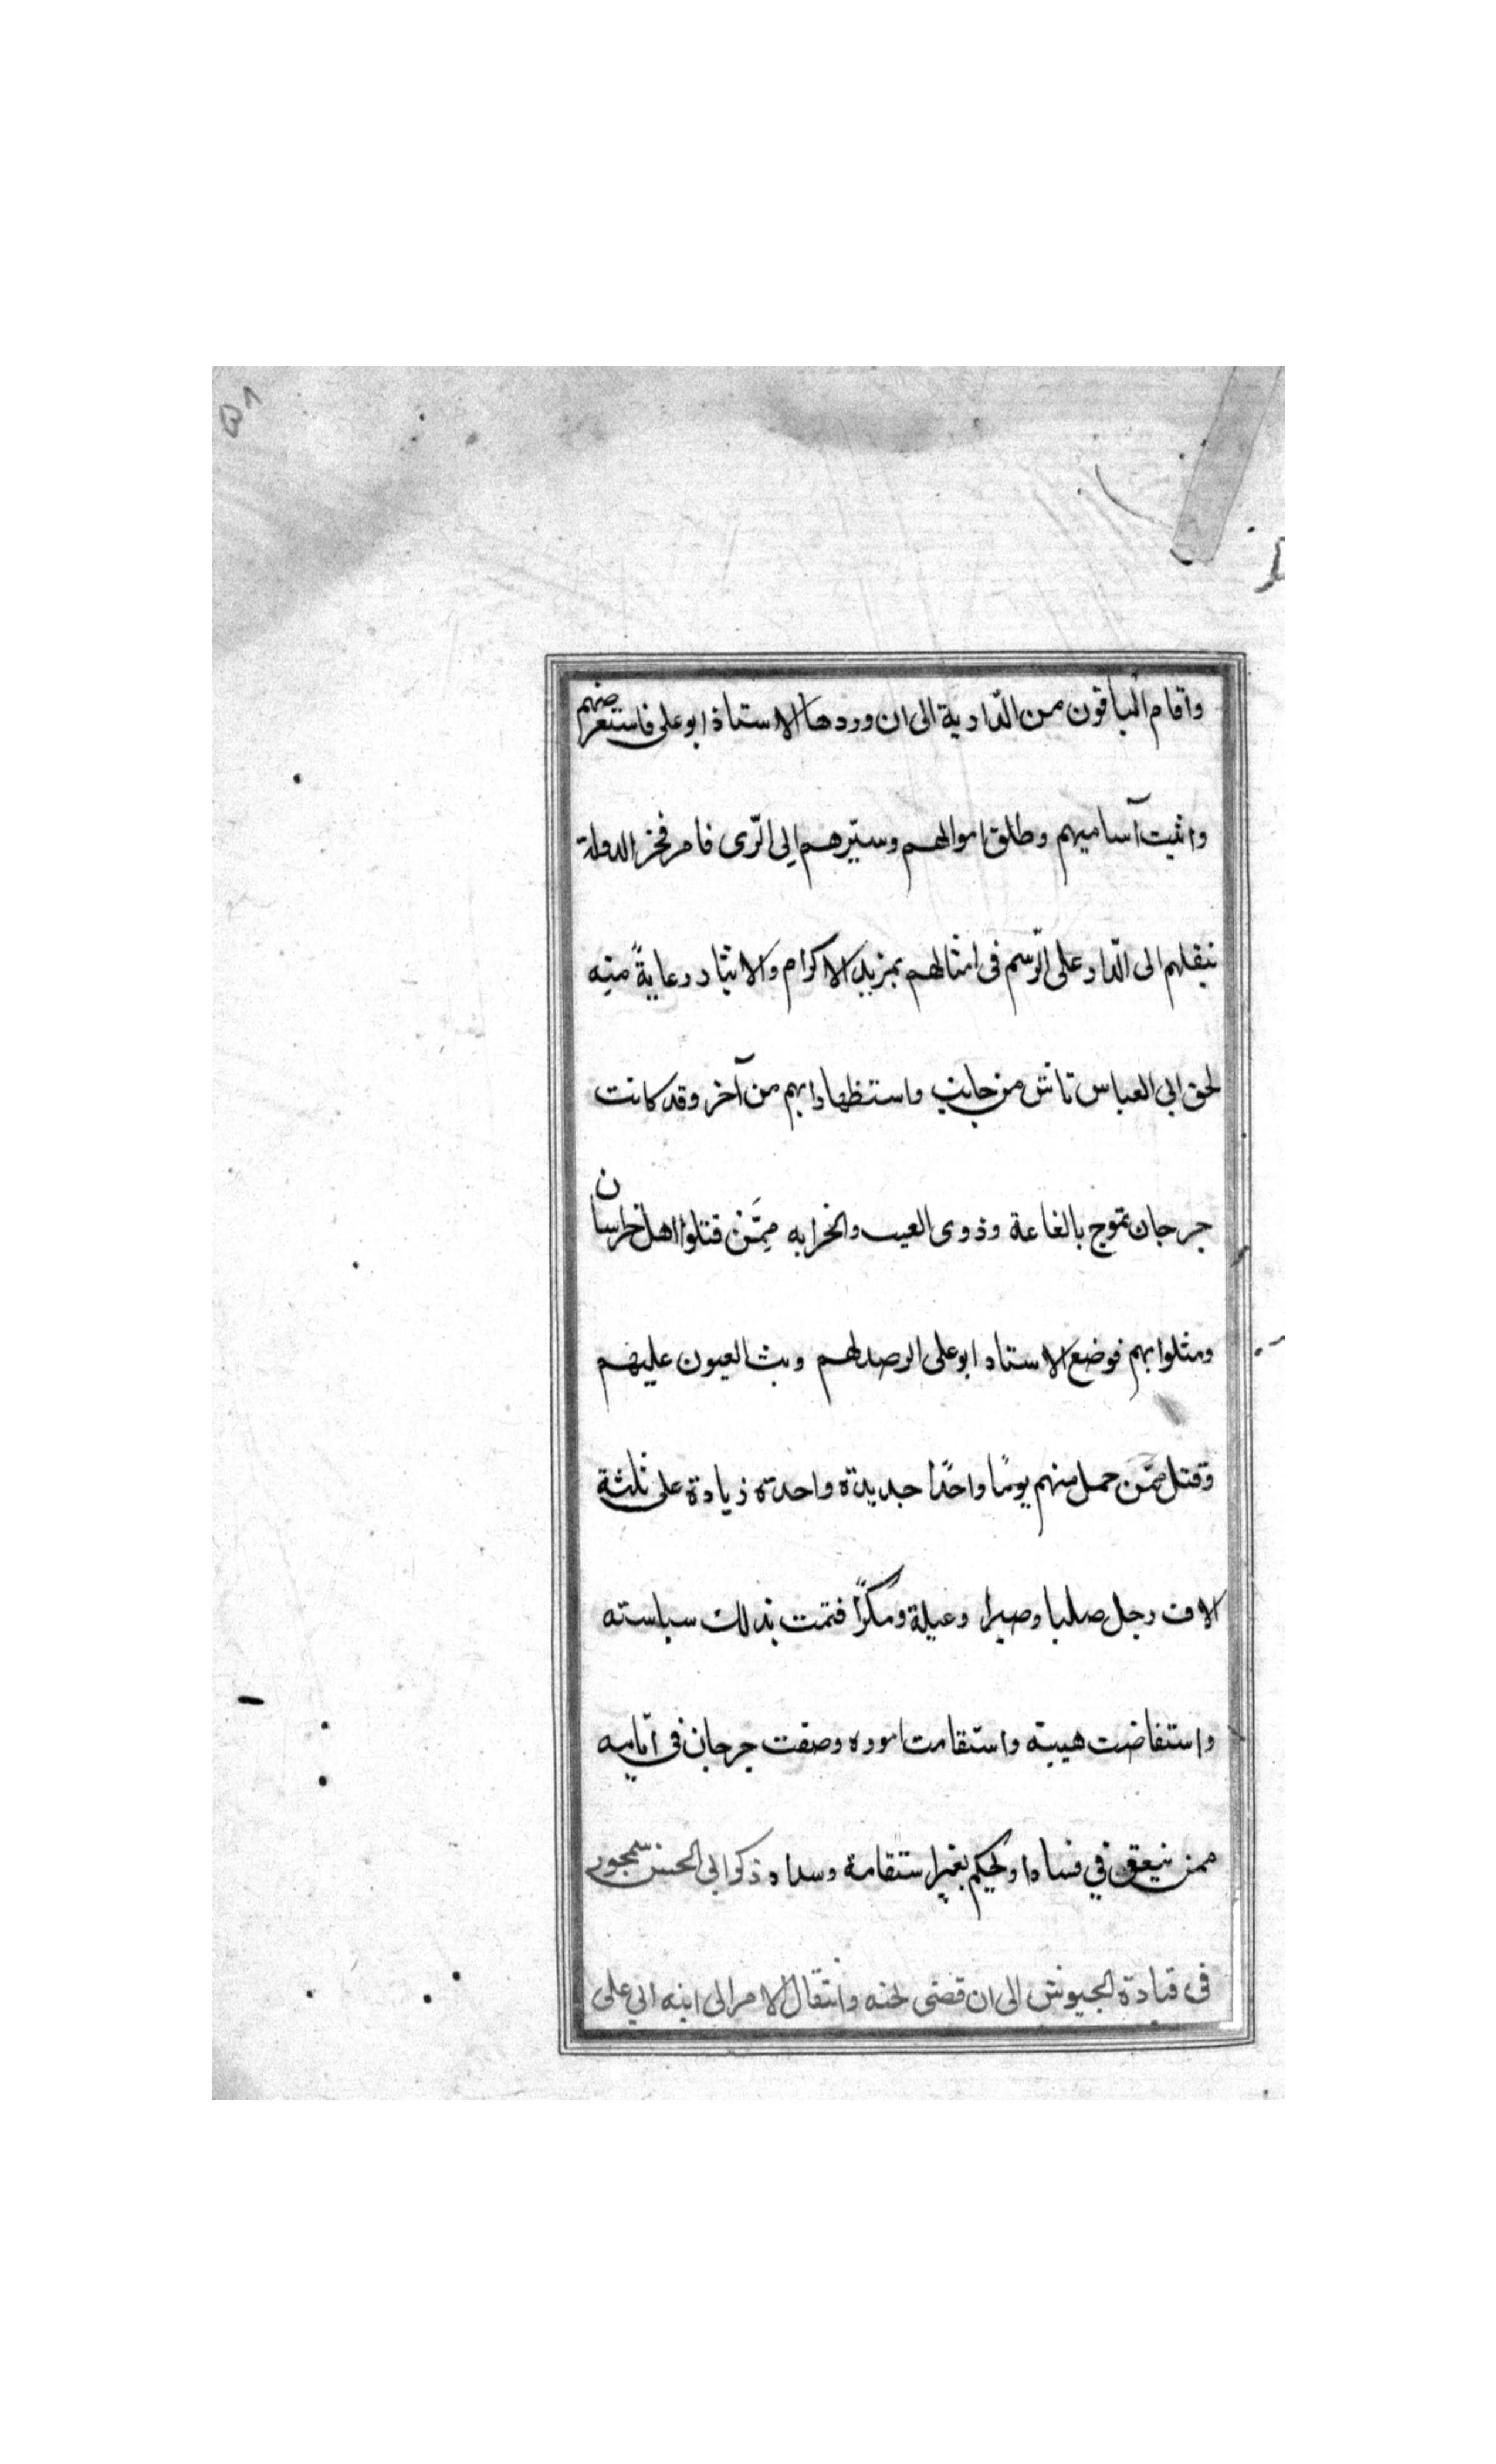 ٥٨
واقام الباقون من الدّارية الى ان وردها الاستاذ ابو على فاستعرضهم
واثبت آساميهم وطلق اموالهم وسيّرهم الى الرّى فامر فخر الدولة
بنقلهم الى الدّار على الرّسم فى امثالهم بمزيد الاكرام والايثار رعايةً منه
لحق ابى العباس تاش من جانب واستظهارا بهم من آخر وقد كانت
جرجان تموج بالغاغة وذوى العيب والخرابه ممَّن قتلوا اهل خراسان
ومثلوا بهم فوضع الاستاد ابو على الرصد لهم وبث العيون عليهم
وقتل ممّن حمل منهم يومًا واحدًا جديدة واحدة زيادة على ثلثة
الاف رجل صلبا وصبرا وغيلة ومكرًا فتمت بذلك سياسته
واستفاضت هيبته واستقامت اموره وصفت جرجان فى ايّامه
ممن ينعق في فساد او يحكم بغير استقامة وسداد ذكر ابي الحسن سيمجور
فى قيادة الجيوش الى ان قضى نحبه وانتقال الامر الى ابنه ابي على